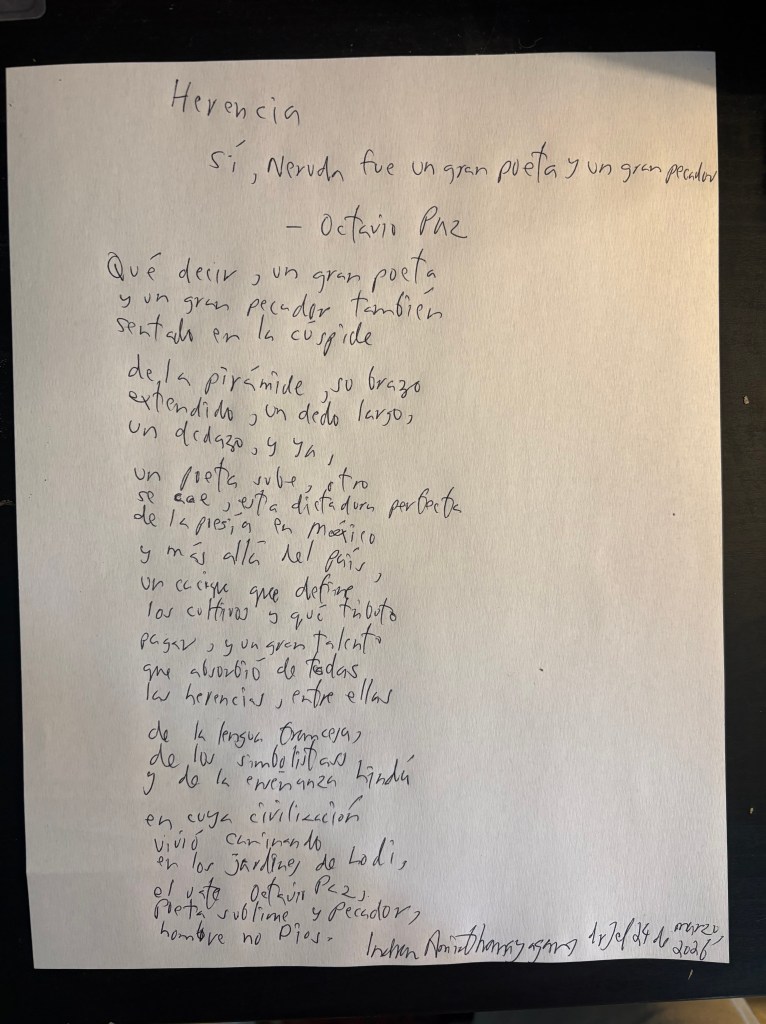 Herencia
Sí, Neruda fue un gran poeta y un gran pecador
- Octavio Paz
Qué decir, un gran poeta
y un gran pecador también
sentado en la cúspide
de la pirámide, su brazo
extendido, un dedo largo,
un dedazo, y ya,
un poeta sube, otro
se cae, esta dictadura perfecta
de la poesía en México
y más allá del país,
un cacique que define
los cultivos y qué tributo
pagar, y un gran talento
que absorbió de todas
las herencias, entre ellas
de la lengua francesa,
de los simbolistas
y de la enseñanza hindú
en cuya civilización
vivió caminando
en los jardines de Lodi,
el vate Octavio Paz,
poeta sublime y pecador,
hombre no Dios.
Indran Amirthanayagam, el 24 de marzo, 2026